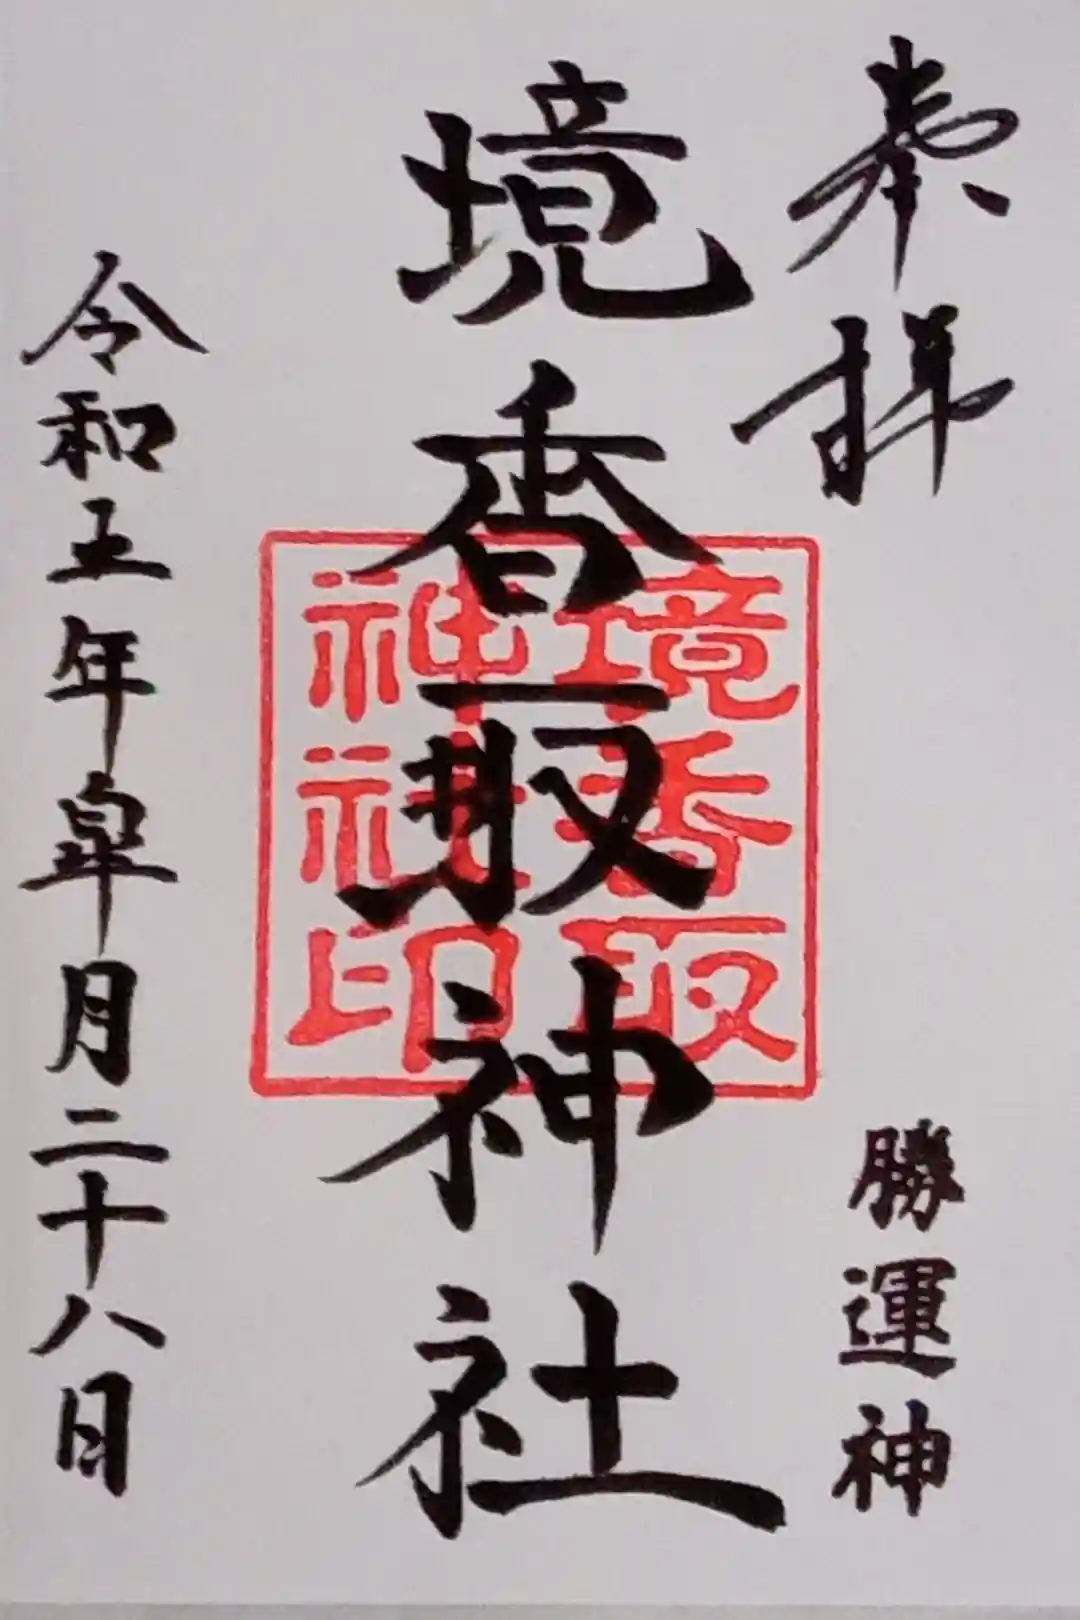 奉拝
勝運神
境香取神社
境香取
神社印
令和五年皐月二十八日